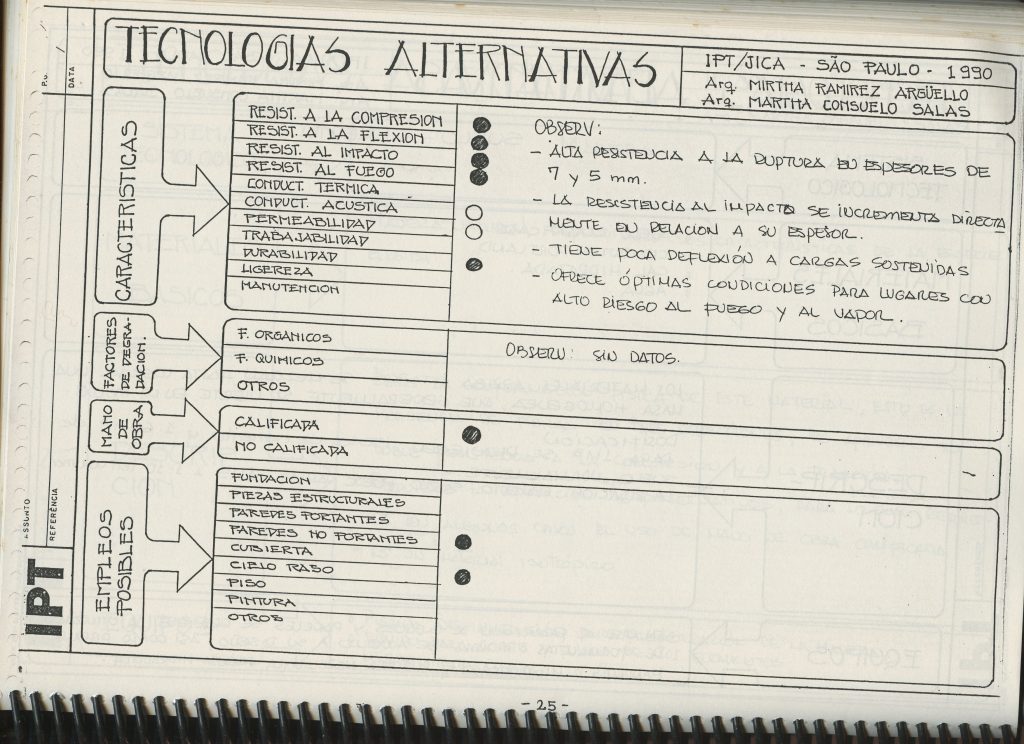 TECNOLOGIAS ALTERNATIVAS
IPT/JICA - SÃO PAULO - 1990
Arq. MIRTHA RAMIREZ ARGÜELLO
Arq. MARTHA CONSUELO SALAS
P.U.
DATA
CARACTERISTICAS
RESIST. A LA COMPRESION
RESIST. A LA FLEXION
RESIST. AL IMPACTO
RESIST. AL FUEGO
CONDUCT. TERMICA
CONDUCT. ACUSTICA
PERMEABILIDAD
TRABAJABILIDAD
DURABILIDAD
LIGEREZA
MANUTENCION
OBSERV:
- ALTA RESISTENCIA A LA RUPTURA EN ESPESORES DE
7 y 5 mm.
- LA RESISTENCIA AL IMPACTO SE INCREMENTA DIRECTA
MENTE EN RELACION A SU ESPESOR.
- TIENE POCA DEFLEXIÓN A CARGAS SOSTENIDAS
- OFRECE ÓPTIMAS CONDICIONES PARA LUGARES CON
ALTO RIESGO AL FUEGO Y AL VAPOR.
FACTORES
DE DEGRA-
DACION.
F. ORGANICOS
F. QUIMICOS
OTROS
OBSERV: SIN DATOS.
MANO
DE
OBRA
CALIFICADA
NO CALIFICADA
EMPLEOS
POSIBLES
FUNDACION
PIEZAS ESTRUCTURALES
PAREDES PORTANTES
PAREDES NO PORTANTES
CUBIERTA
CIELO RASO
PISO
PINTURA
OTROS
ASSUNTO
REFERÊNCIA
IPT
- 25 -